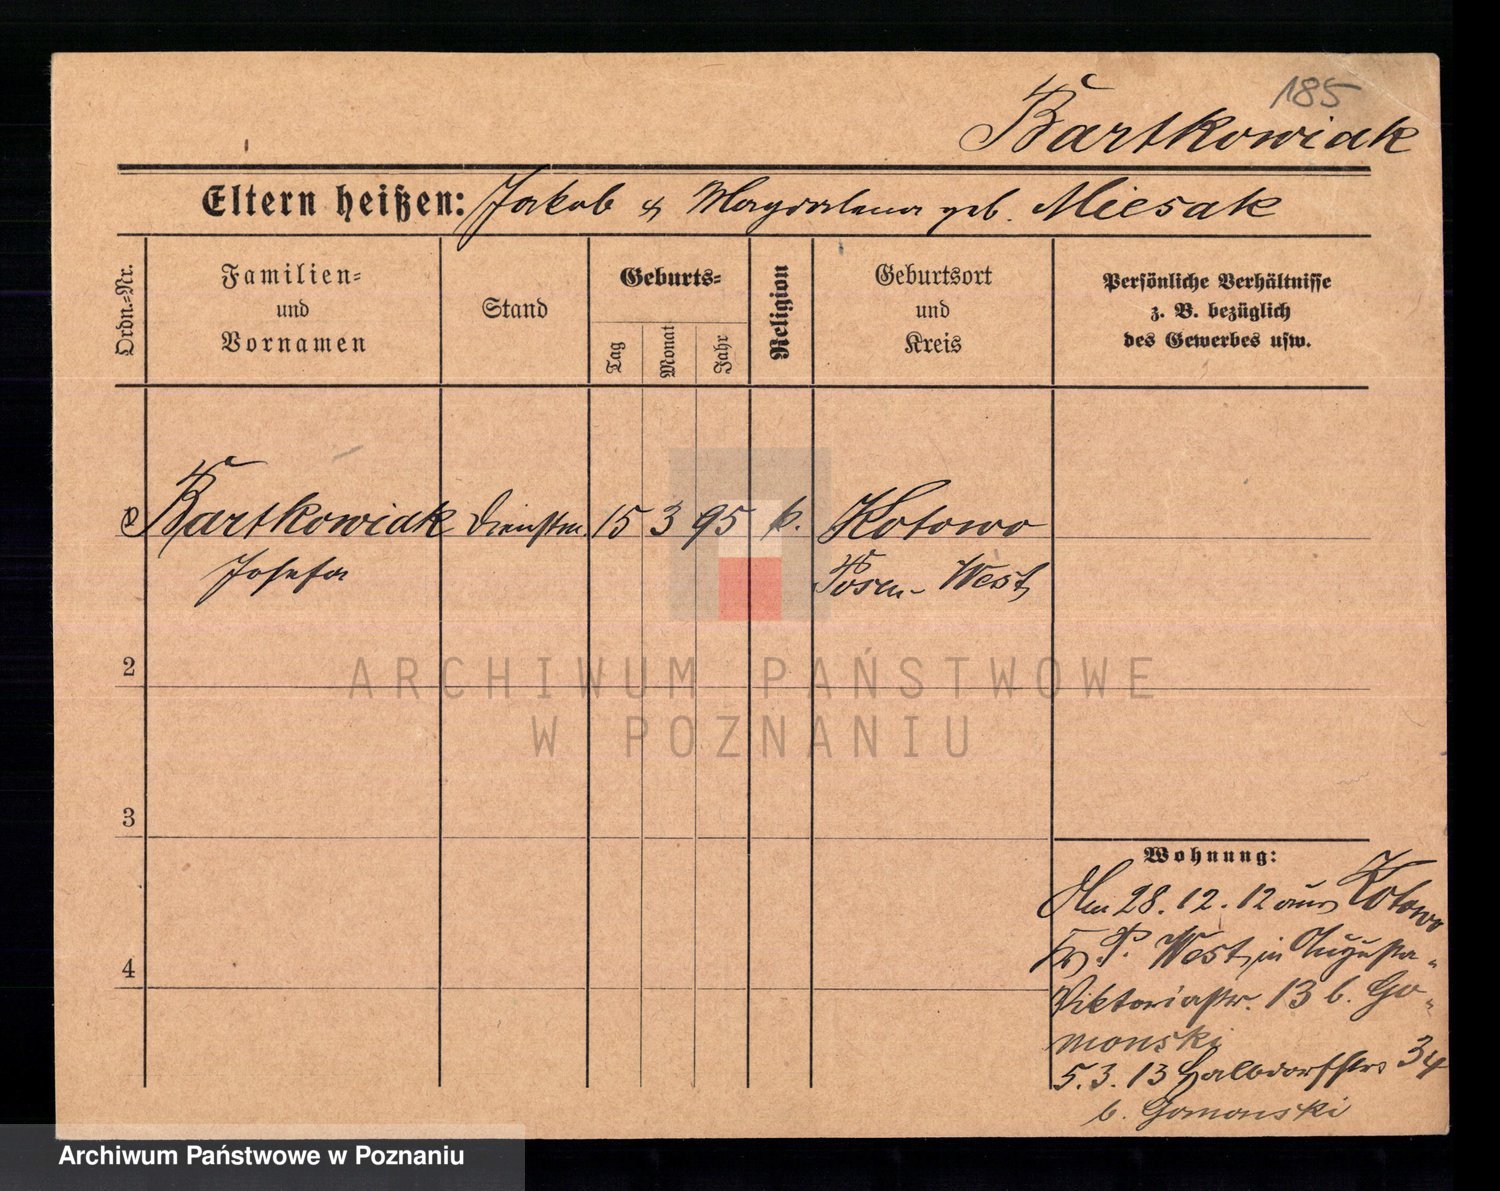 185
Bartkowiak
Eltern heißen: Jakob & Magdalena geb. Miesak
Ordn.-Nr.
Familien- und Vornamen
Stand
Geburts-
Tag
Monat
Jahr
Religion
Geburtsort und Kreis
Persönliche Verhältnisse z. B. bezüglich des Gewerbes usw.
Bartkowiak Dienstm. 15 3 95 k. Kotowo
Josefa Posen-West
2
3
4
Wohnung:
Am 28.12.12 aus Kotowo
Kr. P. West, in Augusta-
Viktoriastr. 13 b. Go-
monski
5.3.13 Halbdorfstr. 34
b. Gomonski
ARCHIWUM PAŃSTWOWE
W POZNANIU
Archiwum Państwowe w Poznaniu